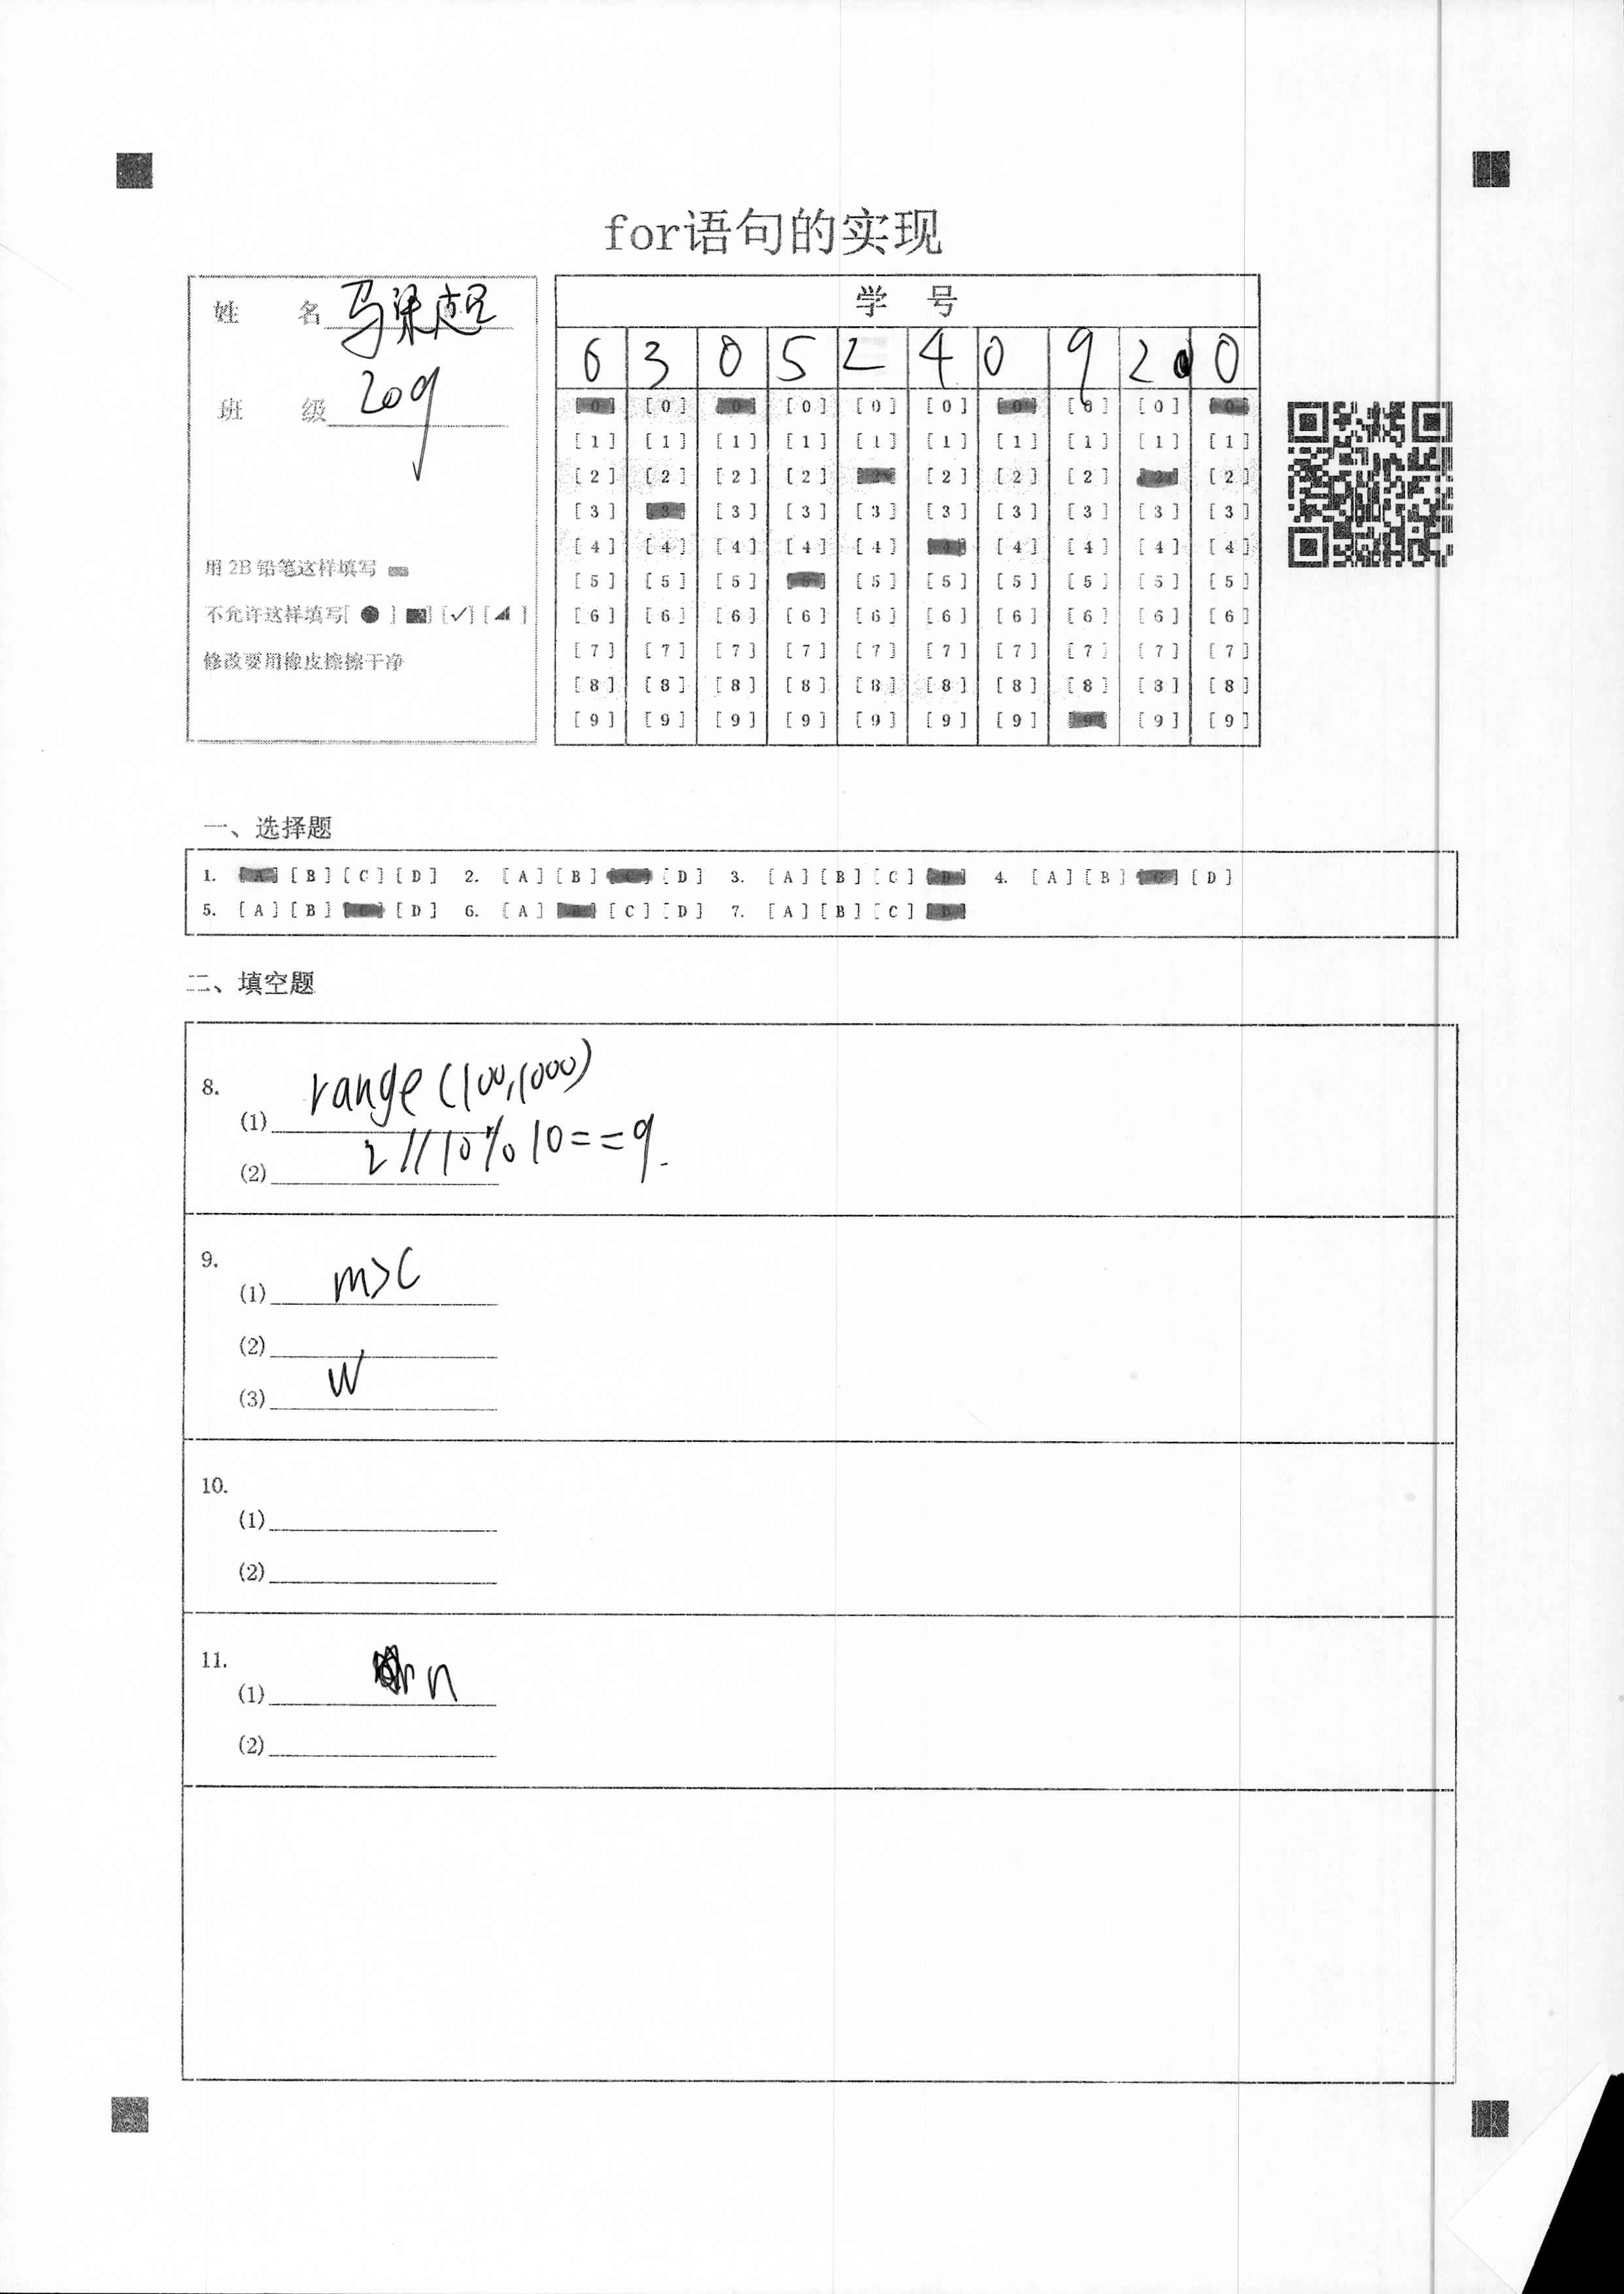 for语句的实现
姓 名 马梁超
班 级 209
用 2B 铅笔这样填写
不允许这样填写[ ● ] [■] [✓] [◢ ]
修改要用橡皮擦擦干净
学 号
6 3 0 5 2 4 0 9 2 0
[0] [0] [0] [0] [0] [0] [0] [0] [0] [0]
[1] [1] [1] [1] [1] [1] [1] [1] [1] [1]
[2] [2] [2] [2] [2] [2] [2] [2] [2] [2]
[3] [3] [3] [3] [3] [3] [3] [3] [3] [3]
[4] [4] [4] [4] [4] [4] [4] [4] [4] [4]
[5] [5] [5] [5] [5] [5] [5] [5] [5] [5]
[6] [6] [6] [6] [6] [6] [6] [6] [6] [6]
[7] [7] [7] [7] [7] [7] [7] [7] [7] [7]
[8] [8] [8] [8] [8] [8] [8] [8] [8] [8]
[9] [9] [9] [9] [9] [9] [9] [9] [9] [9]
一、选择题
1. [A] [B] [C] [D] 2. [A] [B] [C] [D] 3. [A] [B] [C] [D] 4. [A] [B] [C] [D]
5. [A] [B] [C] [D] 6. [A] [B] [C] [D] 7. [A] [B] [C] [D]
二、填空题
8.
(1) range (100,1000)
(2) 2//10%10==9.
9.
(1) m>c
(2)
(3) w
10.
(1)
(2)
11.
(1) n
(2)